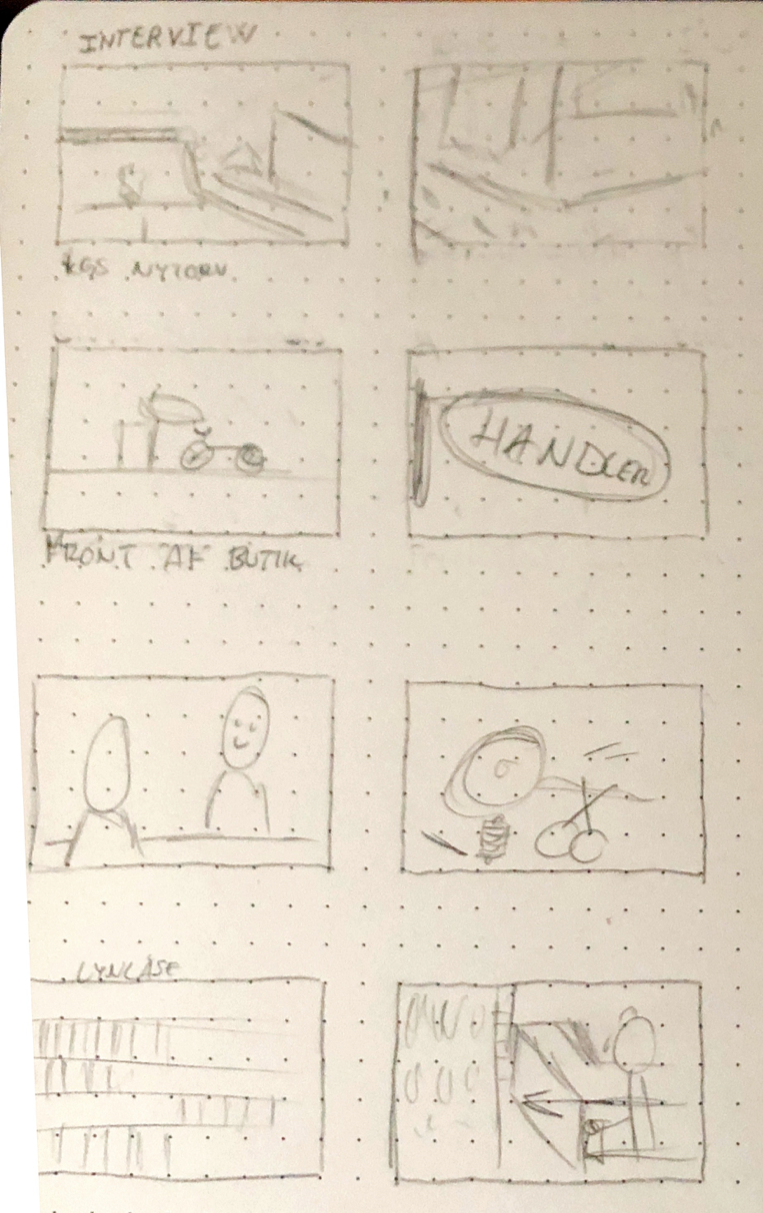 INTERVIEW
KGS NYTORV
HANDLER
FRONT AF BUTIK
LYNLÅSE